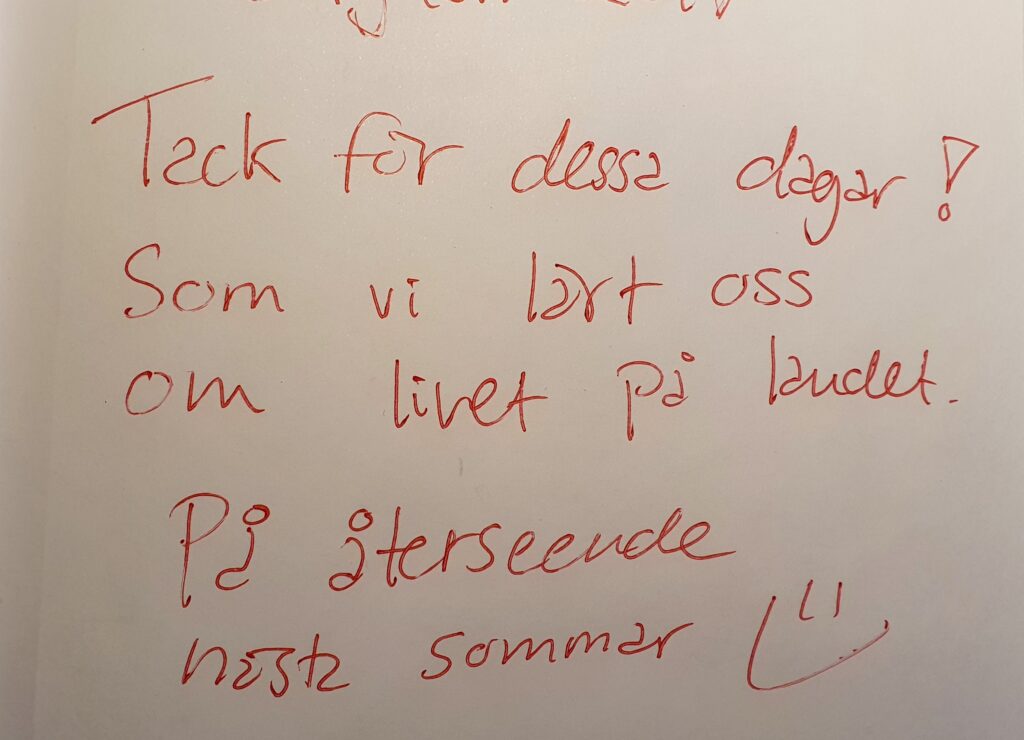 Tack för dessa dagar!
Som vi lärt oss
om livet på landet.
På återseende
nästa sommar